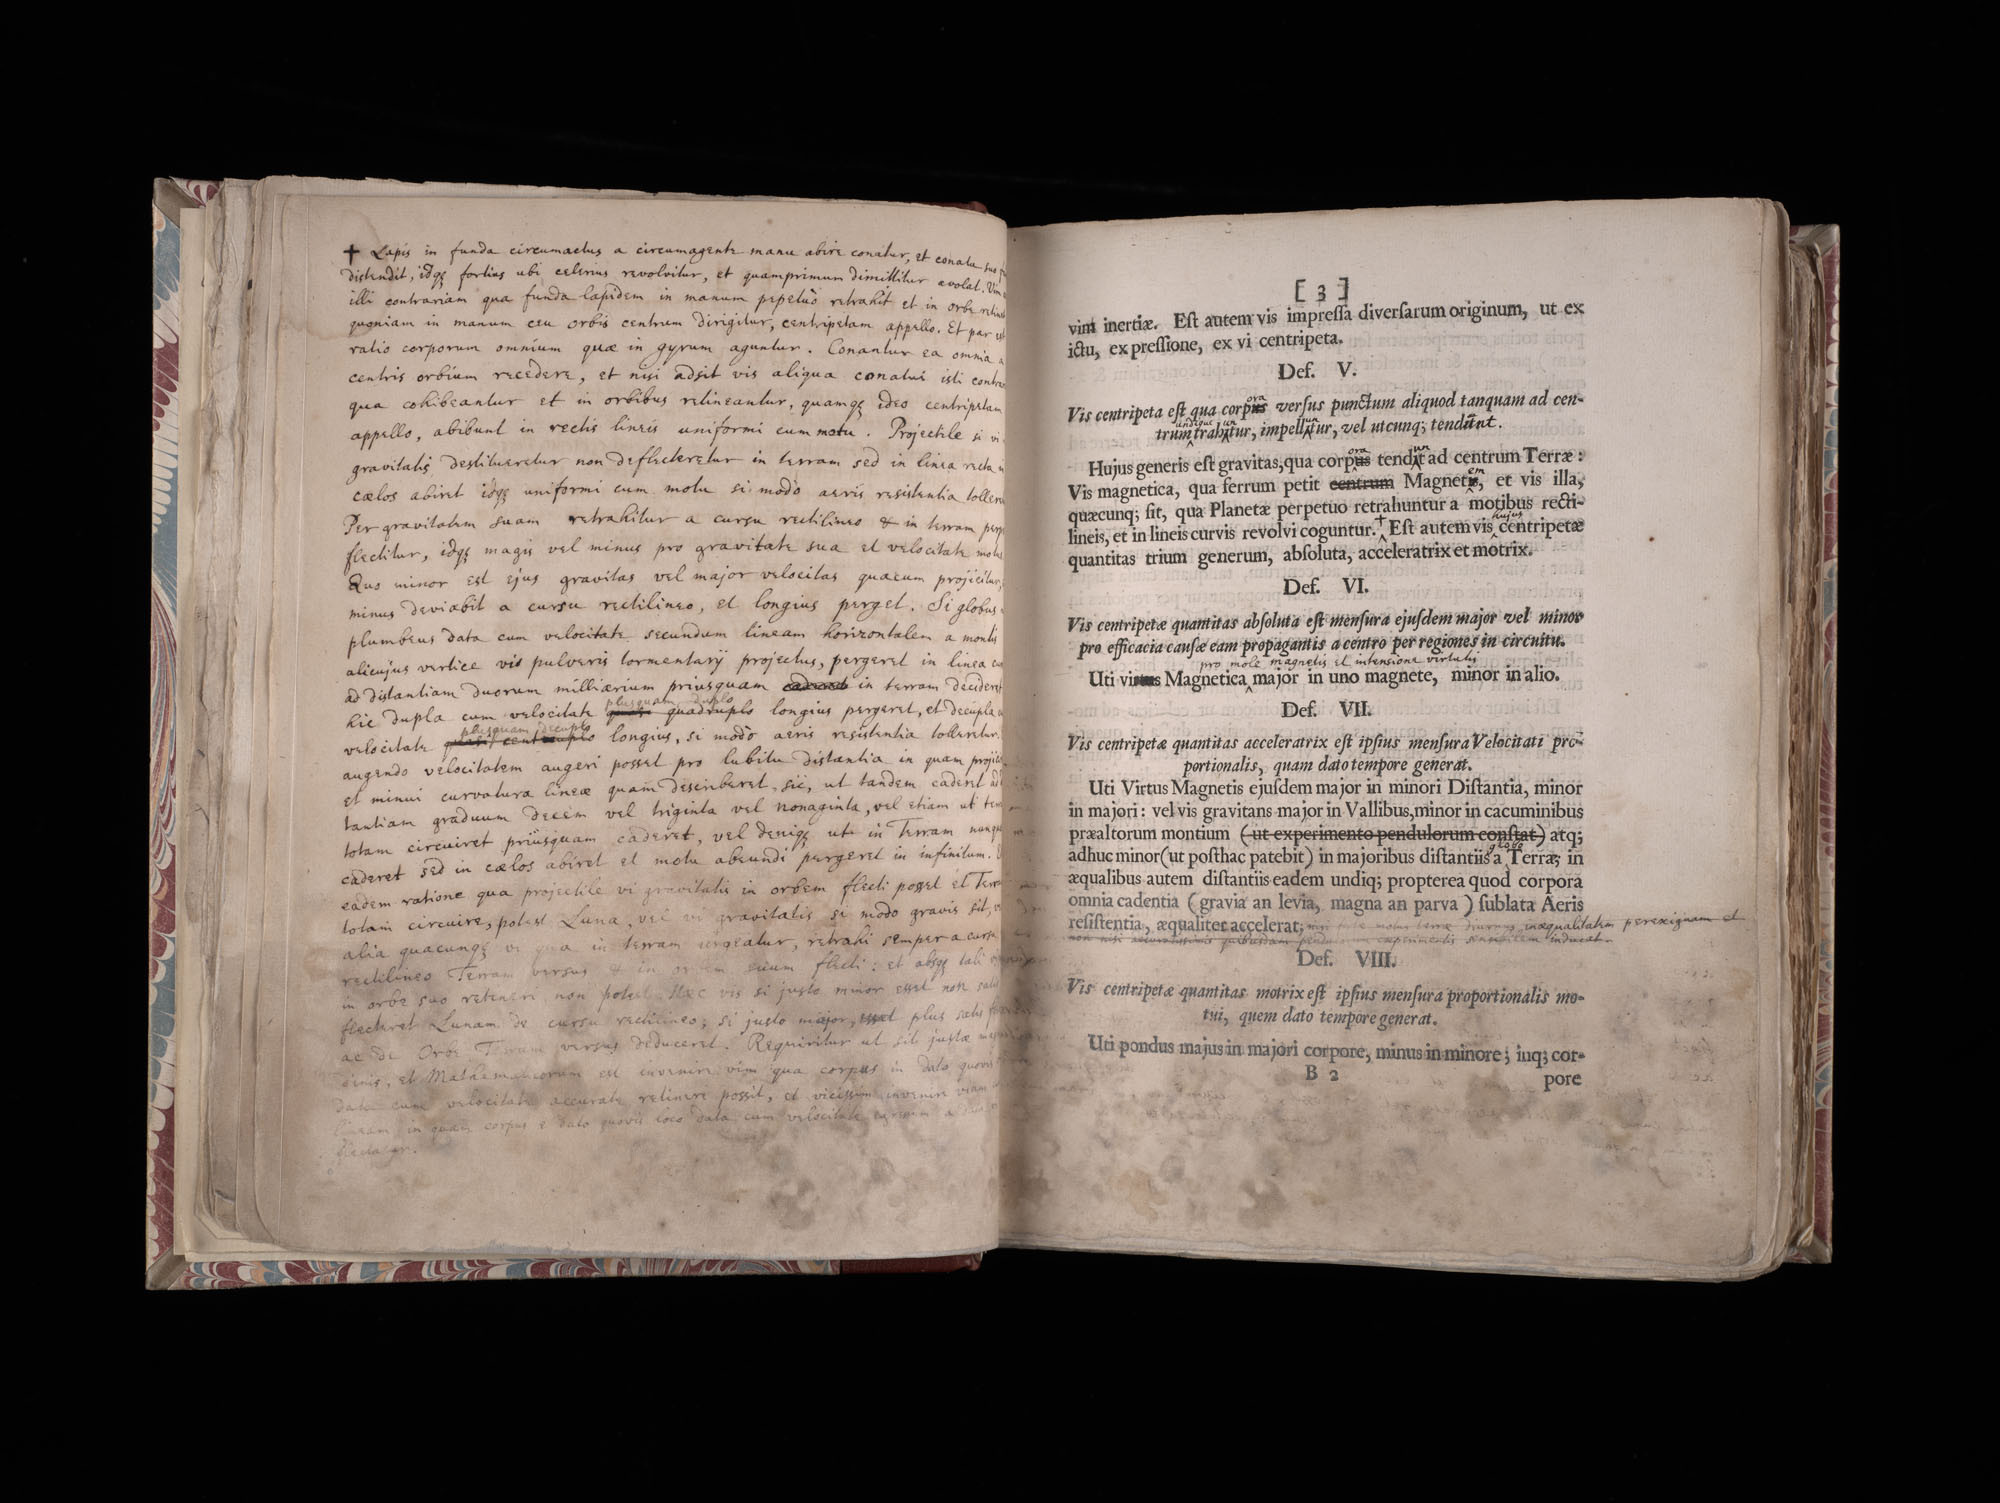 + Lapis in funda circumactus a circumagente manu abire conatur, et conatu suo
distendit, idq; fortius ubi celerius revolvitur, et quamprimum dimittitur avolat. Vim
illi contrariam qua funda lapidem in manum perpetuò retrahit et in orbe retinet
quoniam in manum ceu orbis centrum dirigitur, centripetam appello. Et par est
ratio corporum omnium quæ in gyrum aguntur. Conantur ea omnia a
centris orbium recedere, et nisi adsit vis aliqua conatui isti contra
qua cohibeantur et in orbibus retineantur, quamq; ideo centripetam
appello, abibunt in rectis lineis uniformi cum motu. Projectile si vi
gravitatis destitueretur non deflecteretur in terram sed in linea recta in
cælos abiret idq; uniformi cum motu si modò aeris resistentia tolleretur
Per gravitatem suam retrahitur a cursu rectilineo & in terram perp
flectitur, idq; magis vel minus pro gravitate sua et velocitate motus
Quo minor est ejus gravitas vel major velocitas quacum projicitur,
minus deviabit a cursu rectilineo, et longius perget. Si globus
plumbeus data cum velocitate secundum lineam horizontalem a montis
alicujus vertice vis pulveris tormentarij projectus, pergeret in linea cur
ad distantiam duorum milliarium priusquam caderet in terram decideret
hic dupla cum velocitate quasi plusquam duplo quadruplo longius pergeret, et decupla cum
velocitate quasi centuplo plusquam decuplo longius, si modò aeris resistentia tolleretur.
augendo velocitatem augeri posset pro lubitu distantia in quam projic
et minui curvatura lineæ quam describeret, sic, ut tandem caderet ad
tantiam graduum decem vel triginta vel nonaginta, vel etiam ut terr
totam circuiret priusquam caderet, vel deniq; ut in Terram nunqu
caderet sed in cælos abiret et motu abeundi pergeret in infinitum. E
eadem ratione qua projectile vi gravitatis in orbem flecti posset et Terra
totam circuire, potest Luna, vel vi gravitatis si modo gravis sit, v
alia quacunq; vi qua in terram urgeatur, retrahi semper a cursu
rectilineo Terram versus & in orbem suum flecti: et absq; tali
in orbe suo retineri non potest. Hæc vis si justo minor esset non satis
flecteret Lunam de cursu rectilineo; si justo major, esset plus satis
ac de Orbe Terram versus deduceret. Requiritur ut sit justæ mag
dinis, et Mathematicorum est invenire vim qua corpus in dato quovis
data cum velocitate accurate retineri possit, et vicissim invenire viam
lineam in quam corpus e dato quovis loco data cum velocitate egressum a
flectatur.
[ 3 ]
vim inertiæ. Eſt autem vis impreſſa diverſarum originum, ut ex
ictu, ex preſſione, ex vi centripeta.
Def. V.
Vis centripeta eſt qua corpus ora verſus punctum aliquod tanquam ad cen-
trum undique trahuntur, impelluntur, vel utcunq; tendunt.
Hujus generis eſt gravitas, qua corpus ora tendit un ad centrum Terræ:
Vis magnetica, qua ferrum petit centrum Magnetis em, et vis illa,
quæcunq; ſit, qua Planetæ perpetuo retrahuntur a motibus recti-
lineis, et in lineis curvis revolvi coguntur. + Eſt autem vis hujus centripetæ
quantitas trium generum, abſoluta, acceleratrix et motrix.
Def. VI.
Vis centripetæ quantitas abſoluta eſt menſura ejuſdem major vel minor
pro efficacia cauſæ eam propagantis a centro per regiones in circuitu.
pro mole magnetis et intensione virtutis
Uti virtus Magnetica major in uno magnete, minor in alio.
Def. VII.
Vis centripetæ quantitas acceleratrix eſt ipſius menſura Velocitati pro-
portionalis, quam dato tempore generat.
Uti Virtus Magnetis ejuſdem major in minori Diſtantia, minor
in majori: vel vis gravitans major in Vallibus, minor in cacuminibus
præaltorum montium (ut experimento pendulorum conſtat) atq;
adhuc minor (ut poſthac patebit) in majoribus diſtantiis a globo Terræ; in
æqualibus autem diſtantiis eadem undiq; propterea quod corpora
omnia cadentia (gravia an levia, magna an parva) ſublata Aeris
reſiſtentia, æqualiter accelerat; nisi motus terræ diurnus inæqualitatem perexiguam et
non nisi accuratissimis quibusdam pendulorum experimentis sensibilem inducat.
Def. VIII.
Vis centripetæ quantitas motrix eſt ipſius menſura proportionalis mo-
tui, quem dato tempore generat.
Uti pondus majus in majori corpore, minus in minore; inq; cor-
B 2
pore